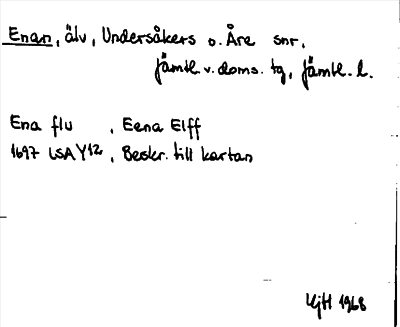 Enan, älv, Undersåkers o. Åre snr,
Jämtl. v. doms. tg, Jämtl. l.
Ena flu , Eena Elff
1697 LSA Y12, Beskr. till kartan
HjH 1968